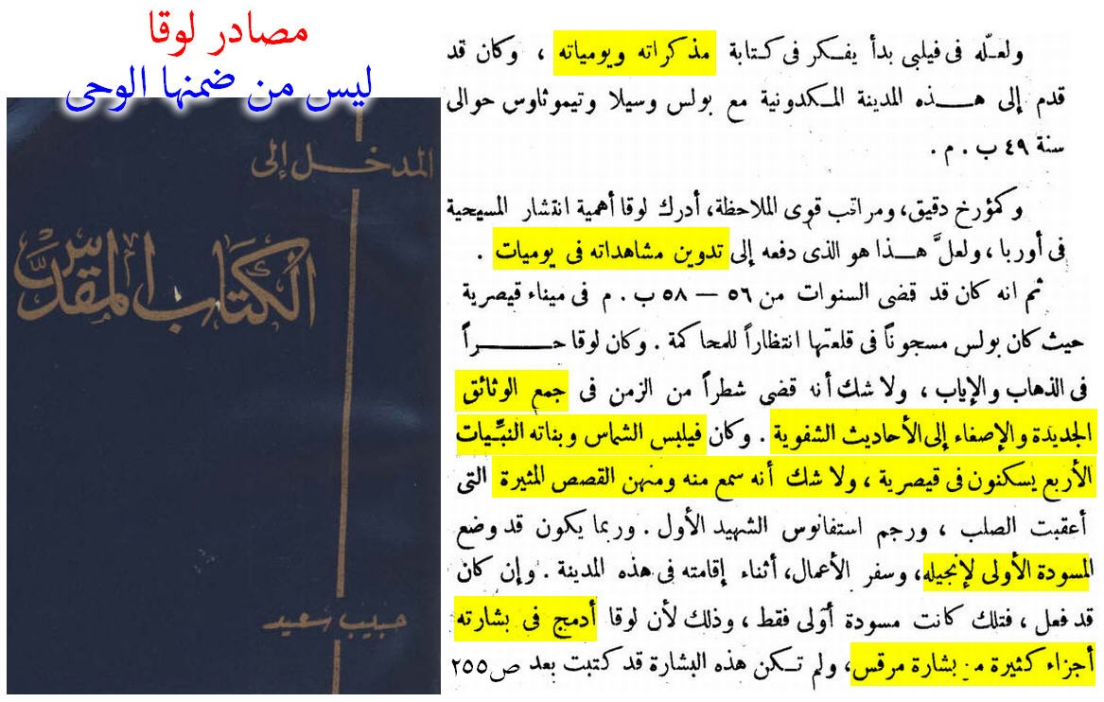 مصادر لوقا
ليس من ضمنها الوحى
المدخل إلى
الكتاب المقدس
حبيب سعيد
ولعلّه فى فيلبى بدأ يفكر فى كتابة مذكراته ويومياته ، وكان قد
قدم إلى هذه المدينة المكدونية مع بولس وسيلا وتيموثاوس حوالى
سنة ٤٩ ب . م .
وكمؤرخ دقيق، ومراقب قوى الملاحظة، أدرك لوقا أهمية انتشار المسيحية
فى أوربا ، ولعلَّ هذا هو الذى دفعه إلى تدوين مشاهداته فى يوميات .
ثم انه كان قد قضى السنوات من ٥٦ — ٥٨ ب . م فى ميناء قيصرية
حيث كان بولس مسجوناً فى قلعتها انتظاراً للمحاكمة . وكان لوقا حراً
فى الذهاب والإياب ، ولا شك أنه قضى شطراً من الزمن فى جمع الوثائق
الجديدة والإصغاء إلى الأحاديث الشفوية . وكان فيلبس الشماس وبناته النبِّيات
الأربع يسكنون فى قيصرية ، ولا شك أنه سمع منه ومنهن القصص المثيرة التى
أعقبت الصلب ، ورجم استفانوس الشهيد الأول . وربما يكون قد وضع
المسودة الأولى لإنجيله، وسفر الأعمال، أثناء إقامته فى هذه المدينة . وإن كان
قد فعل ، فتلك كانت مسودة أولى فقط ، وذلك لأن لوقا أدمج فى بشارته
أجزاء كثيرة من بشارة مرقس، ولم تكن هذه البشارة قد كتبت بعد ص ٢٥٥